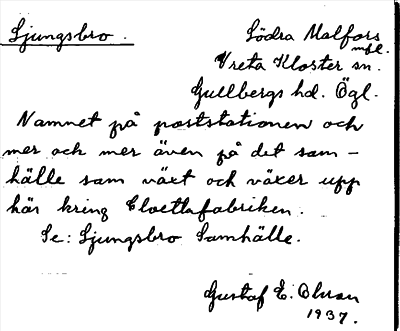 Ljungsbro.
Södra Malfors
mfl.
Vreta Kloster sn.
Gullbergs hd. Ögl.
Namnet på poststationen och
mer och mer även på det sam-
hälle som växt och växer upp
här kring Cloettafabriken.
Se: Ljungsbro Samhälle.
Gustaf E.
1937.